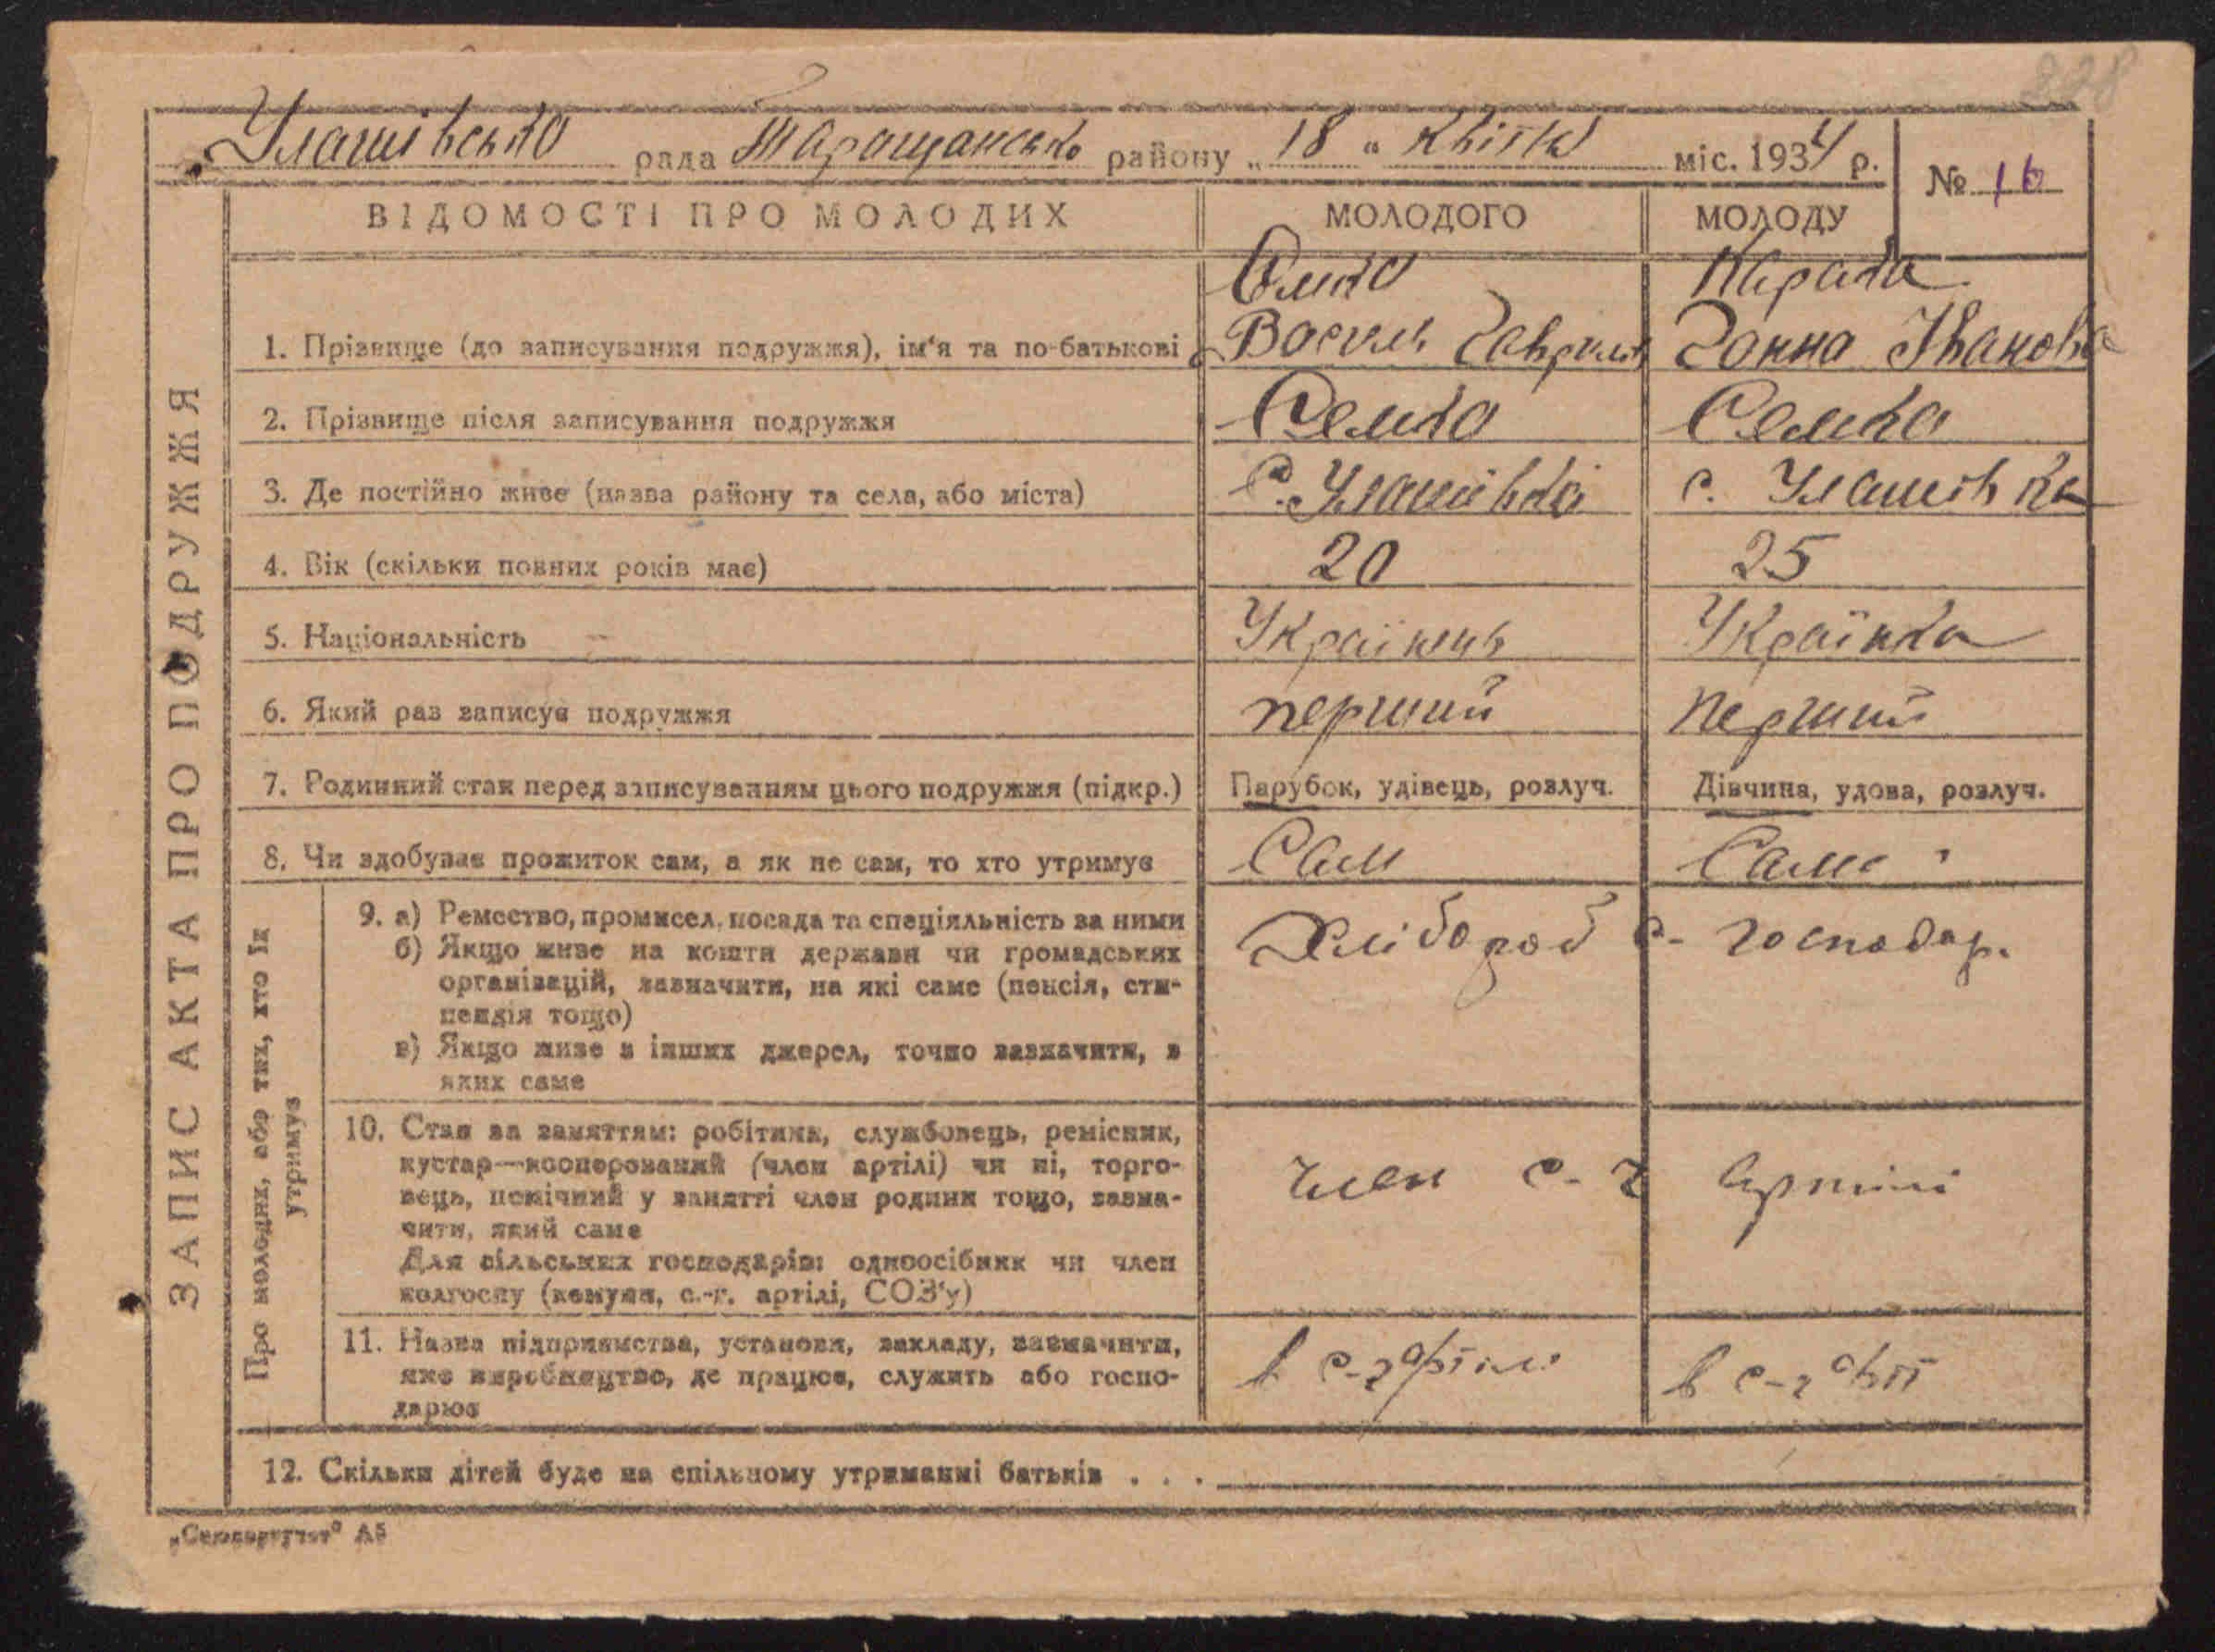 228
Улашівська рада Таращанського району „18“ Квітня міс. 1934 р.
№ 16
ВІДОМОСТІ ПРО МОЛОДИХ МОЛОДОГО МОЛОДУ
ЗАПИС АКТА ПРО ПОДРУЖЖЯ
1. Прізвище (до записування подружжя), ім‘я та по-батькові
Семко
Василь Гаврилів
Ганна Іванова
2. Прізвище після записування подружжя Семко Семко
3. Де постійно живе (назва району та села, або міста) с. Улашівка с. Улашівка
4. Вік (скільки повних років має) 20 25
5. Національність Українець Українка
6. Який раз записує подружжя перший перший
7. Родинний стан перед записуванням цього подружжя (підкр.) Парубок, удівець, розлуч. Дівчина, удова, розлуч.
8. Чи здобуває прожиток сам, а як не сам, то хто утримує Сам Сама
Про молодих, або тих, хто їх
утримує
9. а) Ремество, промисел, посада та спеціяльність за ними
б) Якщо живе на кошти держави чи громадських
організацій, зазначити, на які саме (пенсія, сти-
пендія тощо)
в) Якщо живе з інших джерел, точно зазначити, з
яких саме
Хлібороб с- господар.
10. Стан за заняттям: робітник, службовець, ремісник,
кустар—кооперований (член артілі) чи ні, торго-
вець, помічний у занятті член родини тощо, зазна-
чити, який саме
Для сільських господарів: одноосібник чи член
колгоспу (комуни, с.-г. артілі, СОЗ‘у)
член с-г артілі
11. Назва підприємства, установи, закладу, зазначити,
яке виробництво, де працює, служить або госпо-
дарює
в с-г артілі в с-г арт
12. Скільки дітей буде на спільному утриманні батьків . . .
„Союзоргучет“ А5